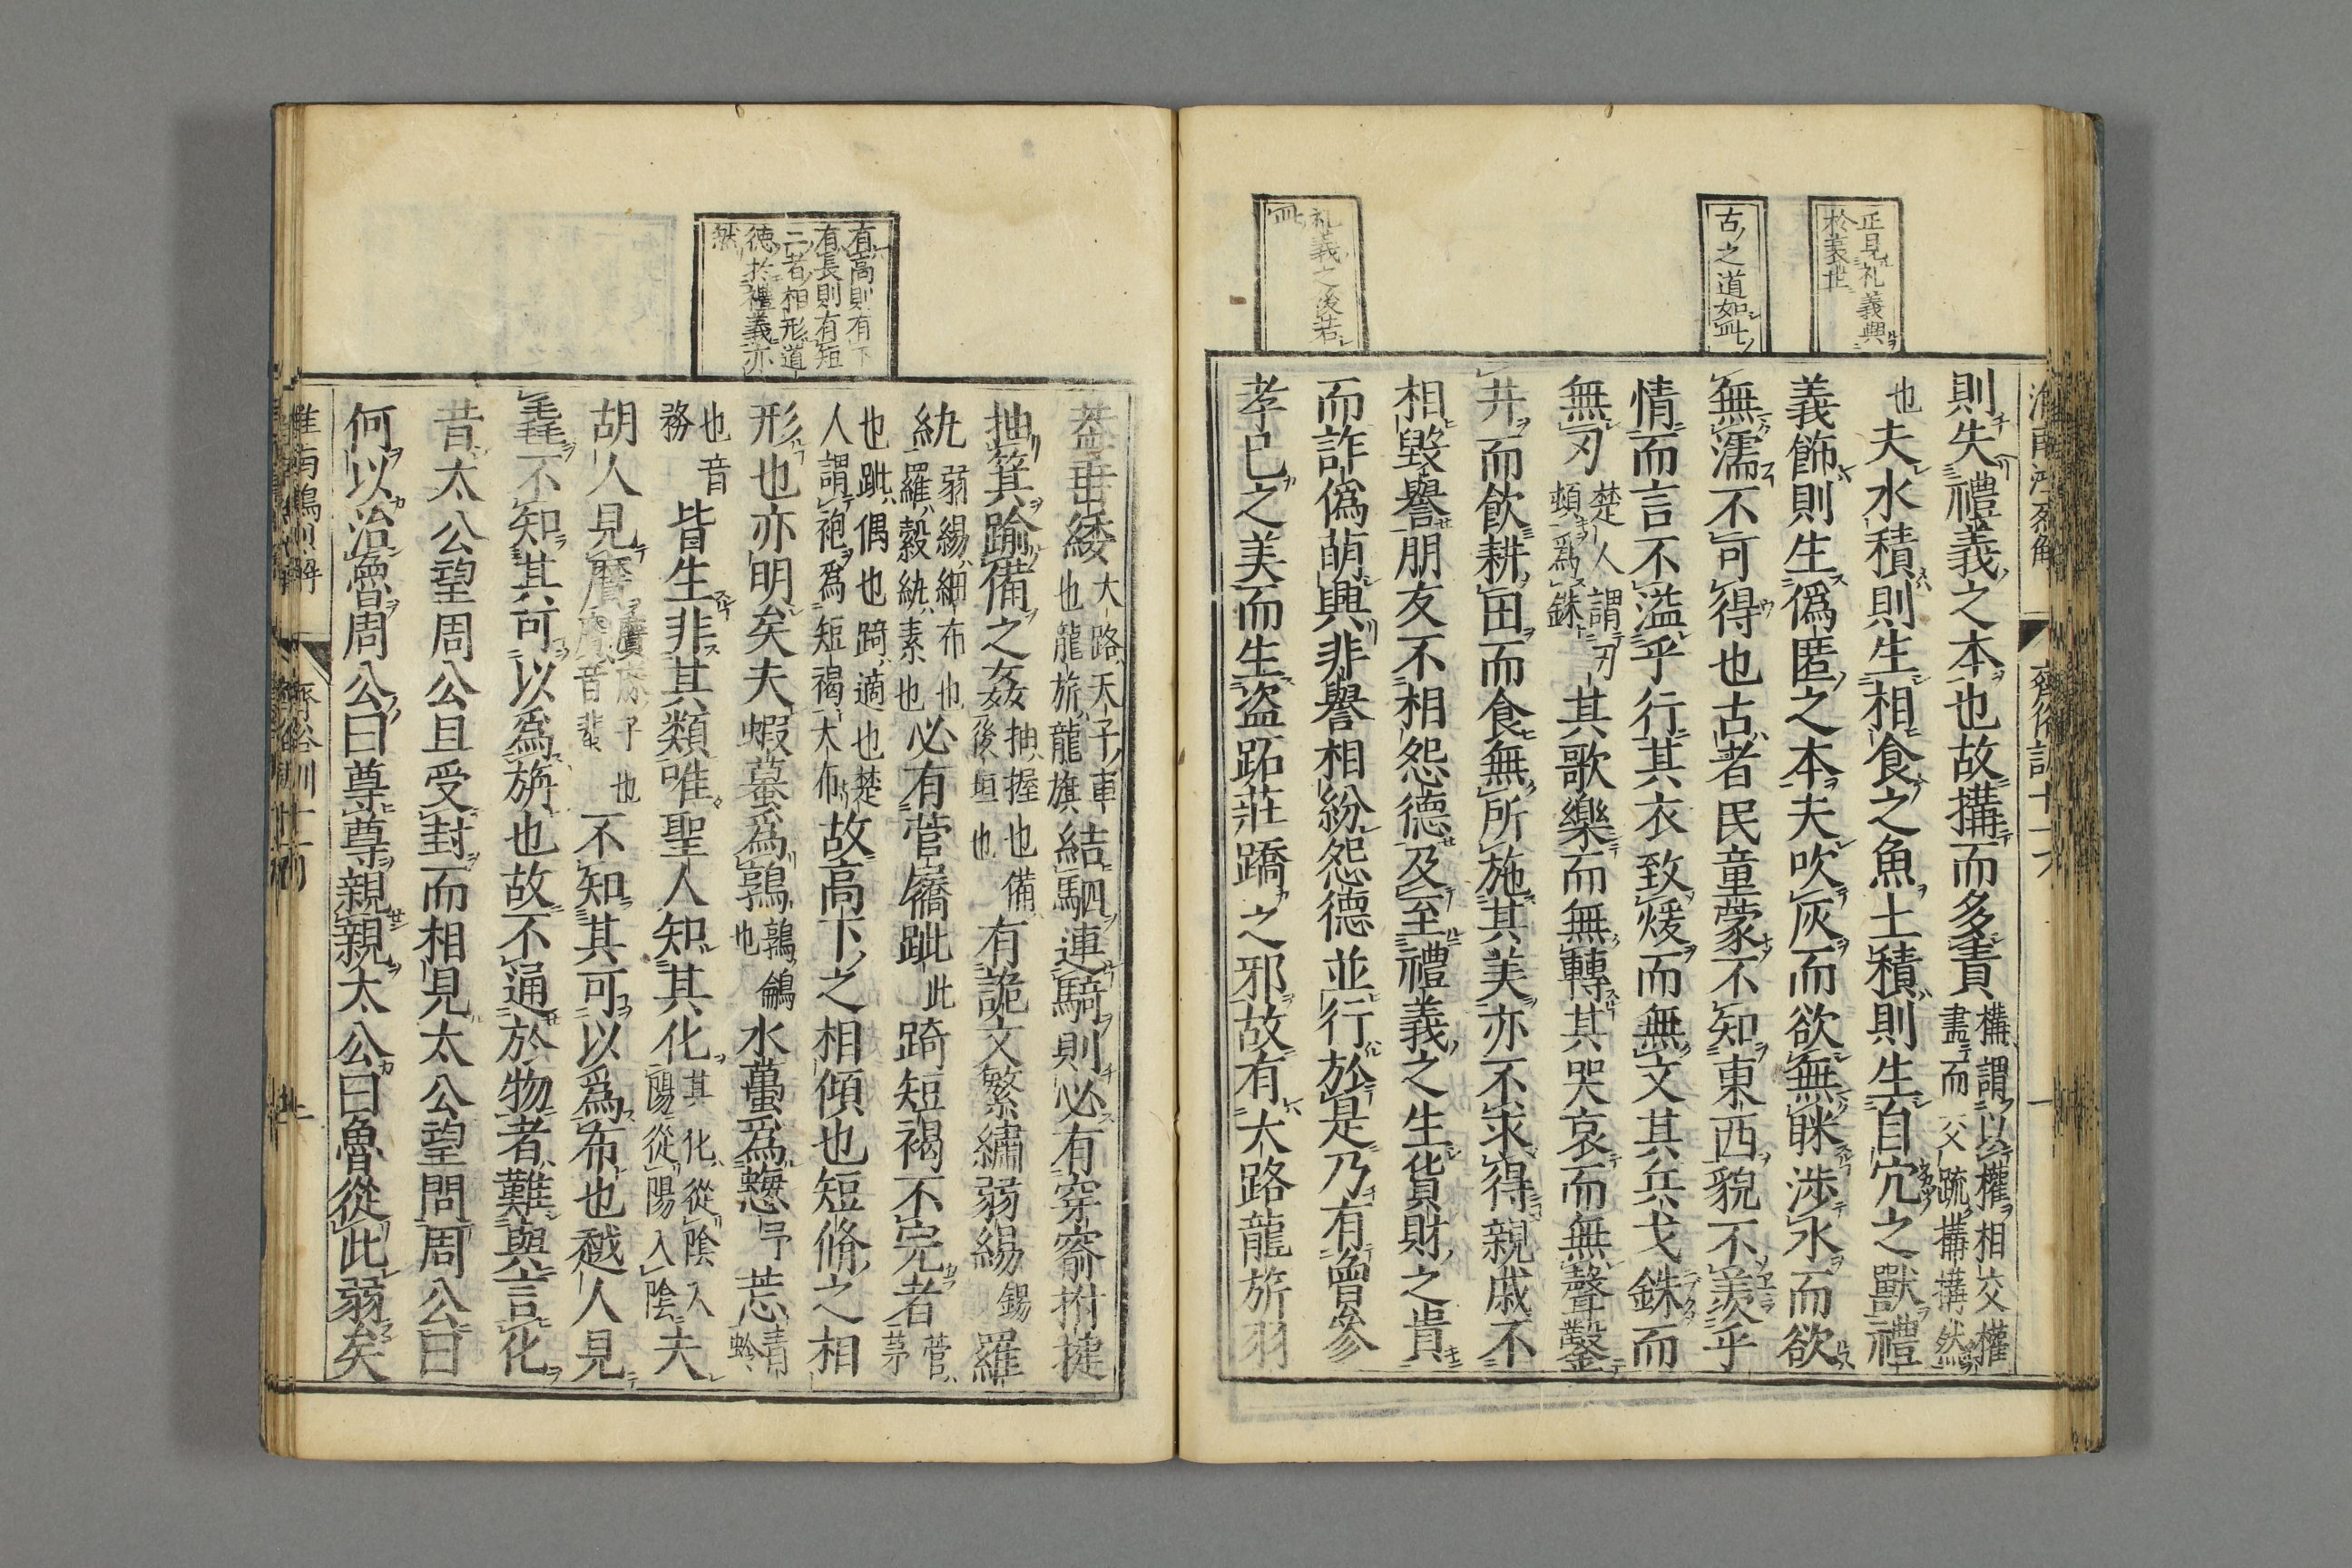 正見礼義興
於衰世
古之道如此
礼義之後若
此
則失禮義之本也故搆而多責搆謂以權相交權
盡而交疏搆搆然
也夫水積則生相食之魚土積則生自穴之獸禮
義飾則生僞匿之本夫吹灰而欲無眯涉水而欲
無濡不可得也古者民童蒙不知東西貌不羨乎
情而言不溢乎行其衣致煖而無文其兵戈銖而
無刃楚人謂刃
頓爲銖其歌樂而無轉其哭哀而無聲鑿
井而飲耕田而食無所施其美亦不求得親戚不
相毀譽朋友不相怨德及至禮義之生貨財之貴
而詐僞萌興非譽相紛怨德並行於是乃有曾參
孝己之美而生盜跖莊蹻之邪故有大路龍旂羽
有高則有下
有長則有短
二者相形道
徳於禮義亦
然
蓋垂緌大路天子車
也龍旂龍旗結駟連騎則必有穿窬拊揵
抽箕踰備之姦抽握也備
後垣也有詭文繁繡弱緆錫羅
紈弱緆細布也
羅縠紈素也必有菅屩跐此踦短褐不完者菅
茅
也跐偶也踦適也楚
人謂袍爲短褐大布故高下之相傾也短脩之相
形也亦明矣夫蝦蟇爲鶉鶉鵪
也水蠆爲蟌㤅青
蛉
也音
務皆生非其類唯聖人知其化其化從陰入
陽從陽入陰夫
胡人見黂不知其可以爲布也越人見
毳不知其可以爲旃也故不通於物者難與言化
昔太公望周公旦受封而相見太公望問周公曰
何以治魯周公曰尊尊親親太公曰魯從此弱矣